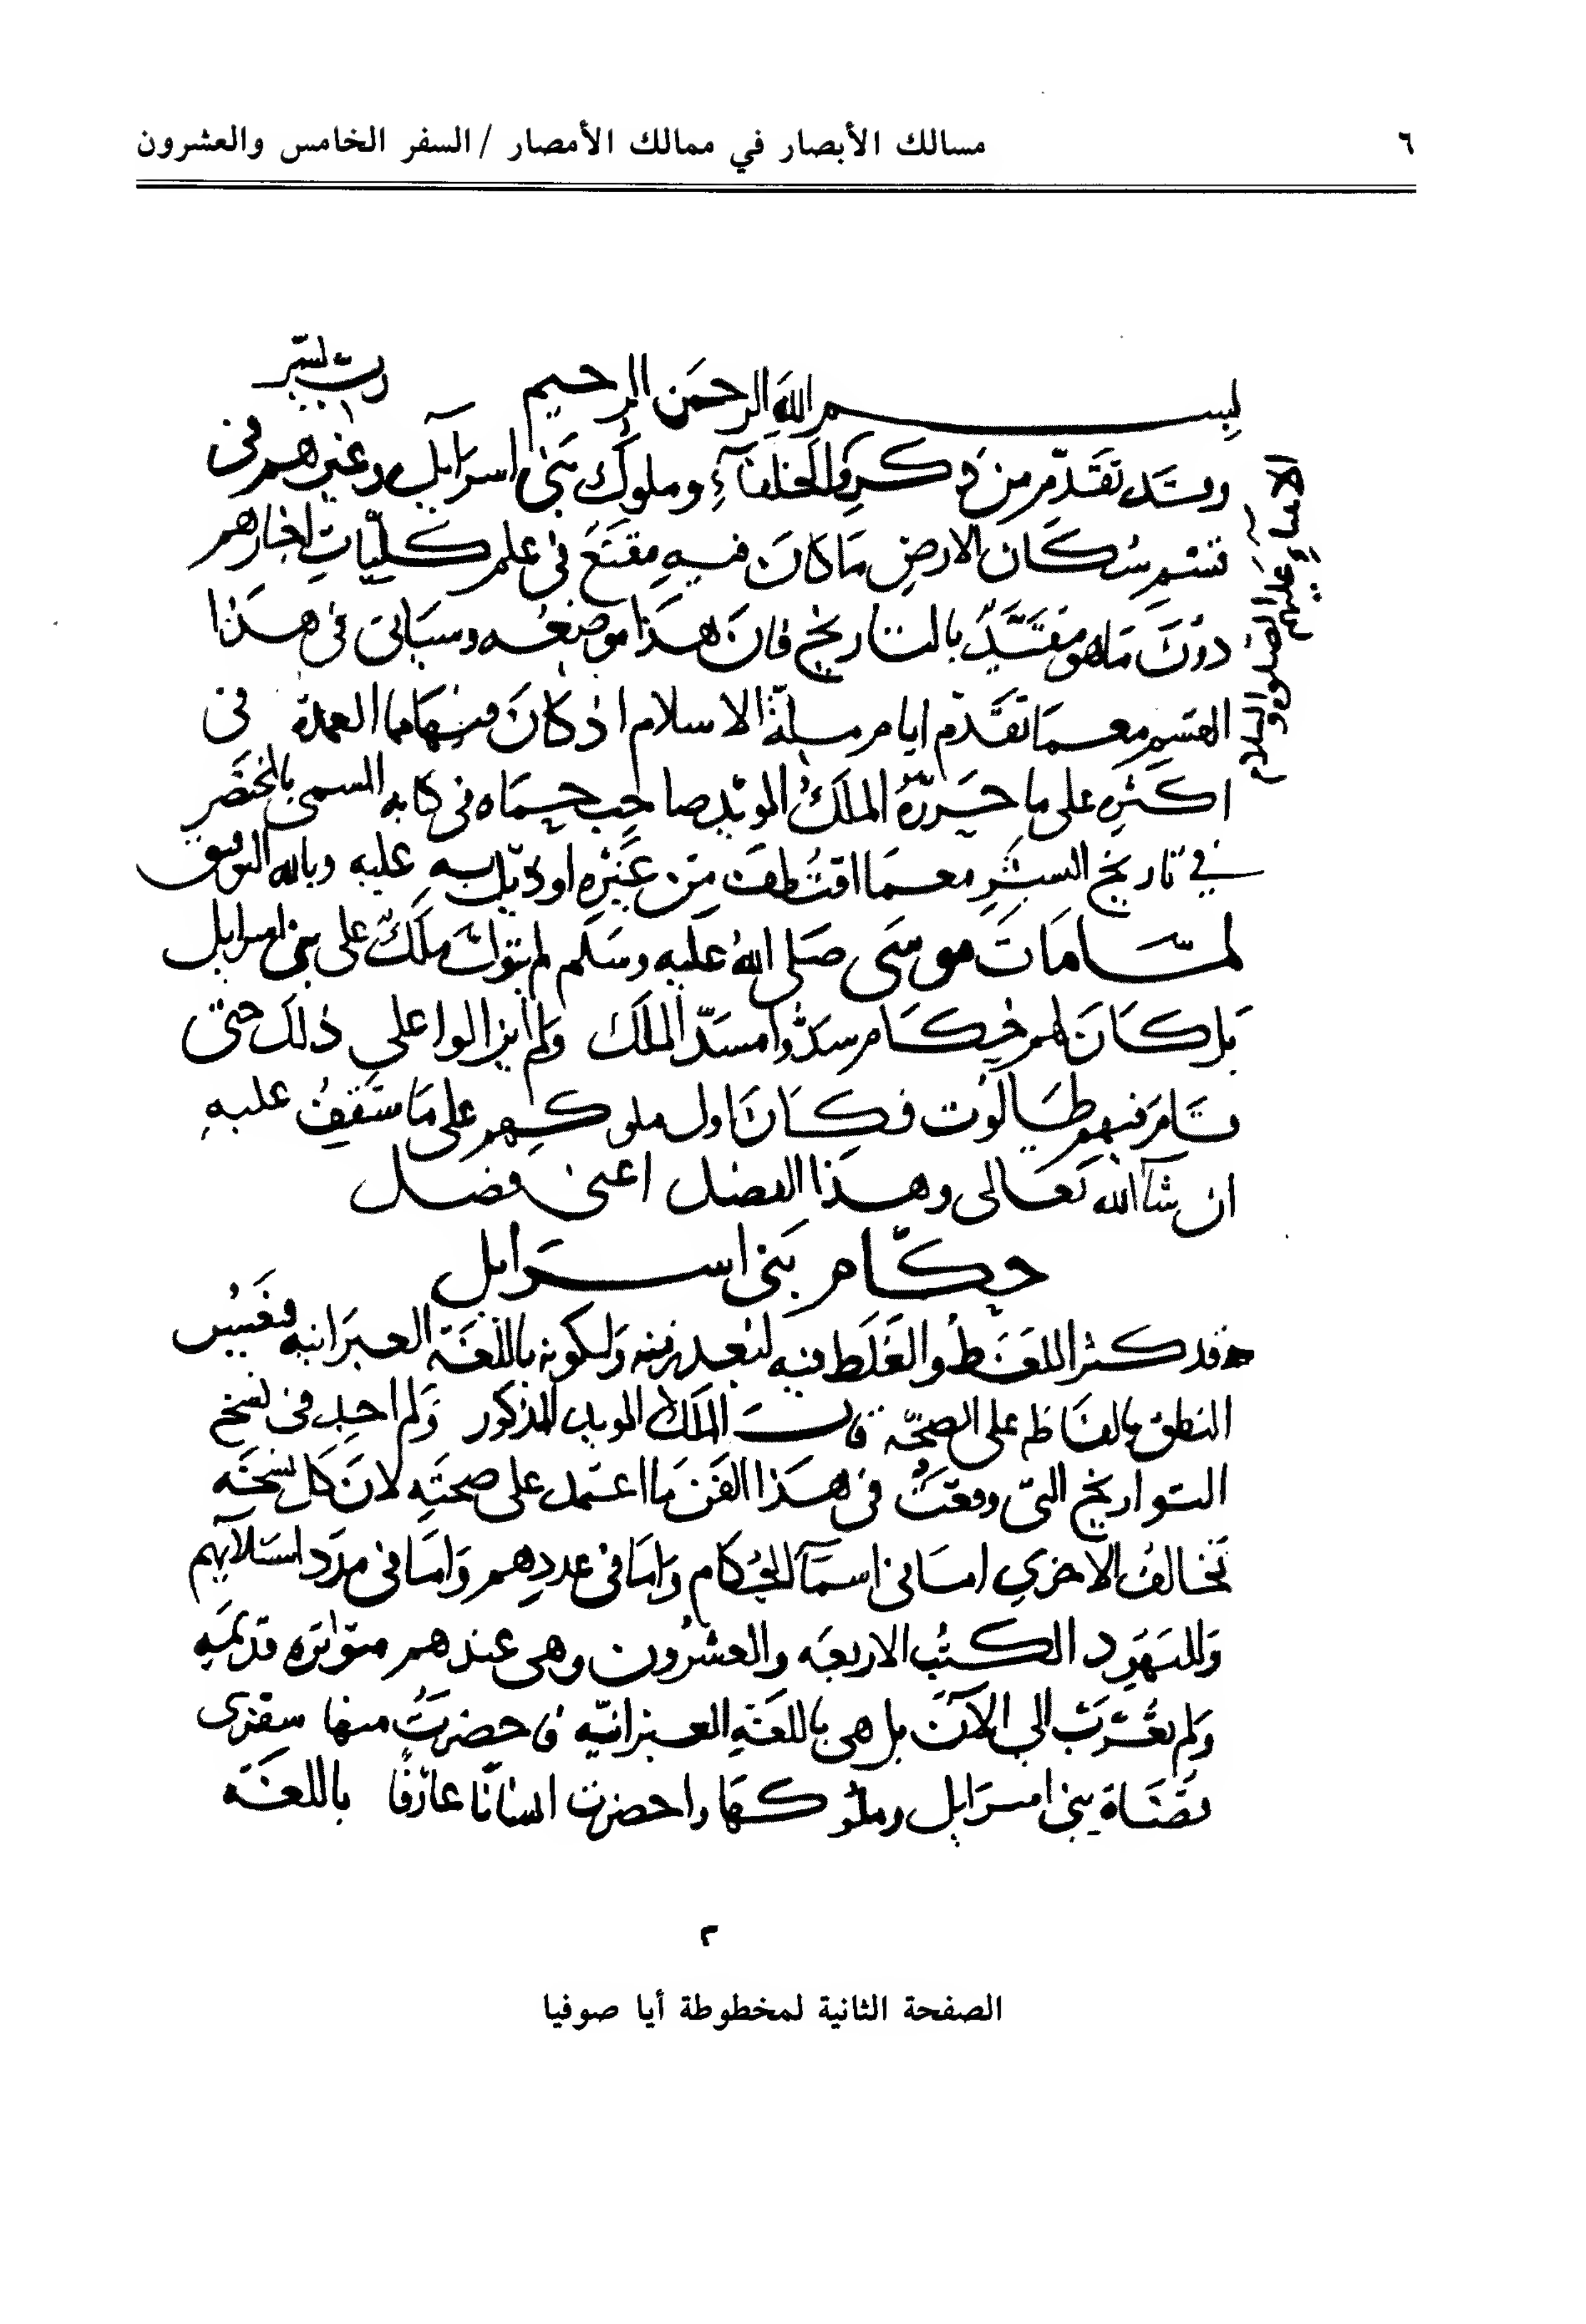 ٦
مسالك الأبصار في ممالك الأمصار / السفر الخامس والعشرون
بسم الله الرحمن الرحيم رب يسر
وقد تقدم من ذكر والخلفاء وملوك بنى اسرايل وغيرهم فى
الانبيا عليهم الصلوة والسلام
قسم سكان الارض ما كان فيه مقنع فى علم كليات اخبارهم
دون ما هو مقيد بالتاريخ فان هذا موضعه وسياتى فى هذا
القسم مع ما تقدم ايام ملة الاسلام اذ كان فيهما العمدة فى
اكثره على ما حرره الملك المويد صاحب حماه فى كتابه المسمى بالمختصر
في تاريخ البشر مع ما اقتطف من غيره او ذيل به عليه وبالله التوفيق
لما مات موسى صلى الله عليه وسلم لم يتول ملك على بنى اسرايل
بل كان لهم حكام سدوا مسد الملك ولم يزالوا على ذلك حتى
قام فيهم طالوت فكان اول ملوكهم على ما ستقف عليه
ان شآ الله تعالى وهذا الفصل اعنى فصل
حكام بنى اسرايل
قد كثر اللغط والغلط فيه لبعد زمنه ولكونه باللغة العبرانيه فتعسر
النطق بالفاظه على الصحة قال الملك المويد المذكور ولم اجد فى نسخ
التواريخ التى وقعت فى هذا الفن ما اعتمد على صحته لان كل نسخه
تخالف الاخرى اما فى اسمآ الحكام واما فى عددهم واما فى مدد استيلآيهم
ولليهود الكتب الاربعه والعشرون وهى عندهم متواتره قديمه
ولم تعرب الى الآن بل هى باللغة العبرانيه فاحضرت منها سفرى
قضاة بنى اسرايل وملوكها واحضرت انسانا عارفا باللغه
٢
الصفحة الثانية لمخطوطة أيا صوفيا